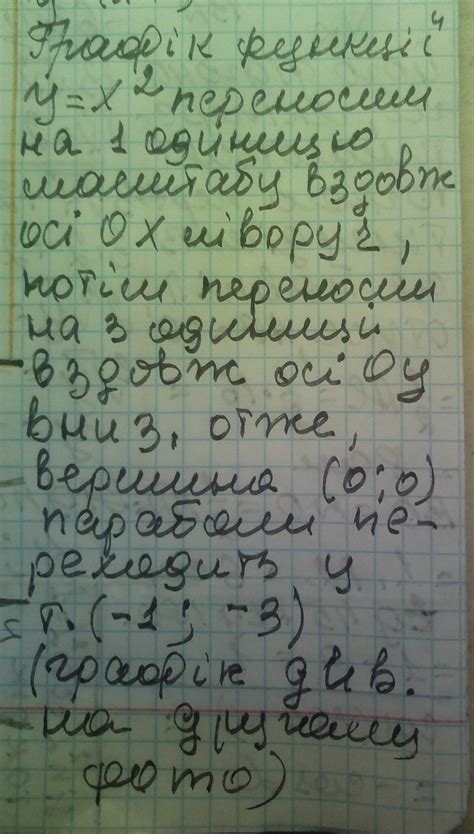 Графік функції
y=x² переносим
на 1 одиницю
масштабу вздовж
осі OX ліворуч,
потім переносим
на 3 одиниці
вздовж осі Oy
вниз, отже,
вершина (0;0)
параболи пе-
реходить у
т. (-1; -3)
(графік див.
на другому
фото)